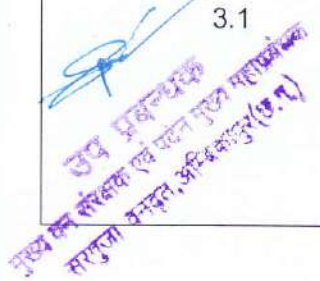 3.1
उप प्रबन्धक
मुख्य वन संरक्षक एवं पदेन मुख्य महाप्रबंधक
सरगुजा वनवृत्त, अम्बिकापुर (छ.ग.)